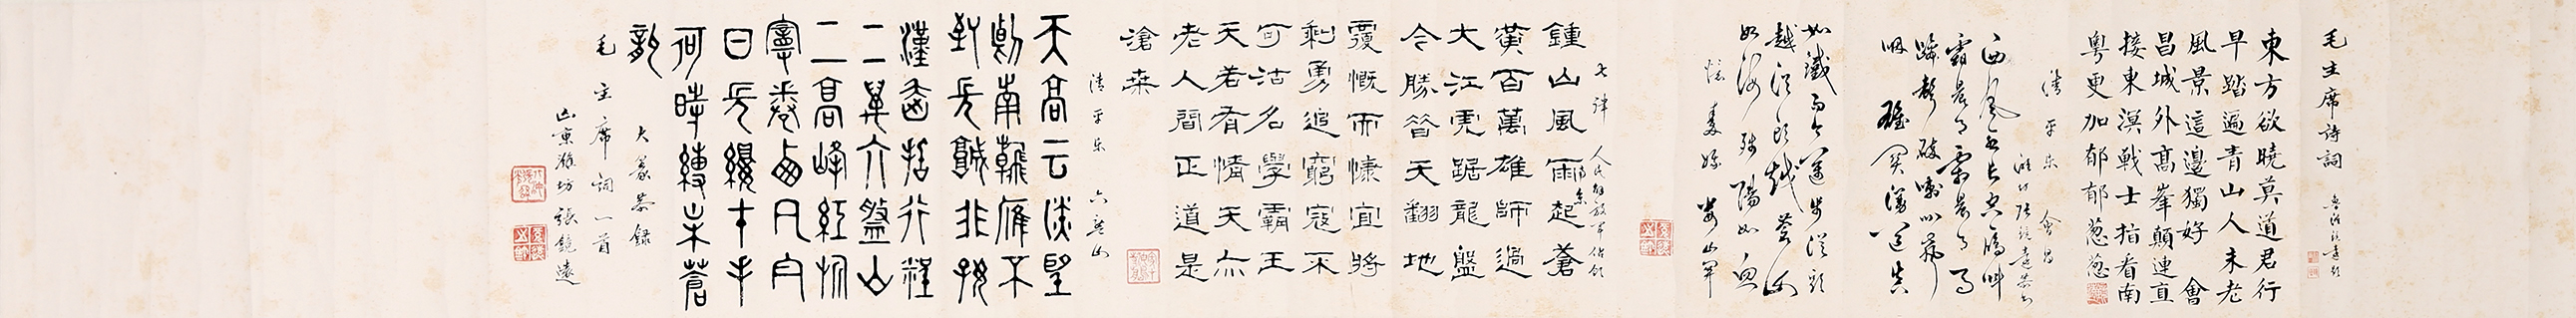 毛主席詩詞
東方欲曉莫道君行
早踏遍青山人未老
風景這邊獨好會
昌城外高峯顛連直
接東溟戰士指看南
粤更加郁郁葱葱
清平乐 會昌
西風烈長空雁叫
霜晨月霜晨月馬
蹄聲碎喇叭聲
咽雄関漫道真
如鐵而今邁步從頭
越從頭越蒼山
如海殘陽如血
憶秦娥 娄山関
七律 人民解放軍佔領
南京
鍾山風雨起蒼
黃百萬雄師過
大江虎踞龍盤
今勝昔天翻地
覆慨而慷宜將
剩勇追窮寇不
可沽名學霸王
天若有情天亦
老人間正道是
滄桒
清平乐 六盤山
天高云淡望
斷南飛雁不
到長城非好
漢屈指行程
二二萬六盤山
二高峰紅旂
漫卷西風今
日長纓在手
何時縛未蒼
龍
大篆恭録
毛主席詞一首
山東濰坊張鏡遠